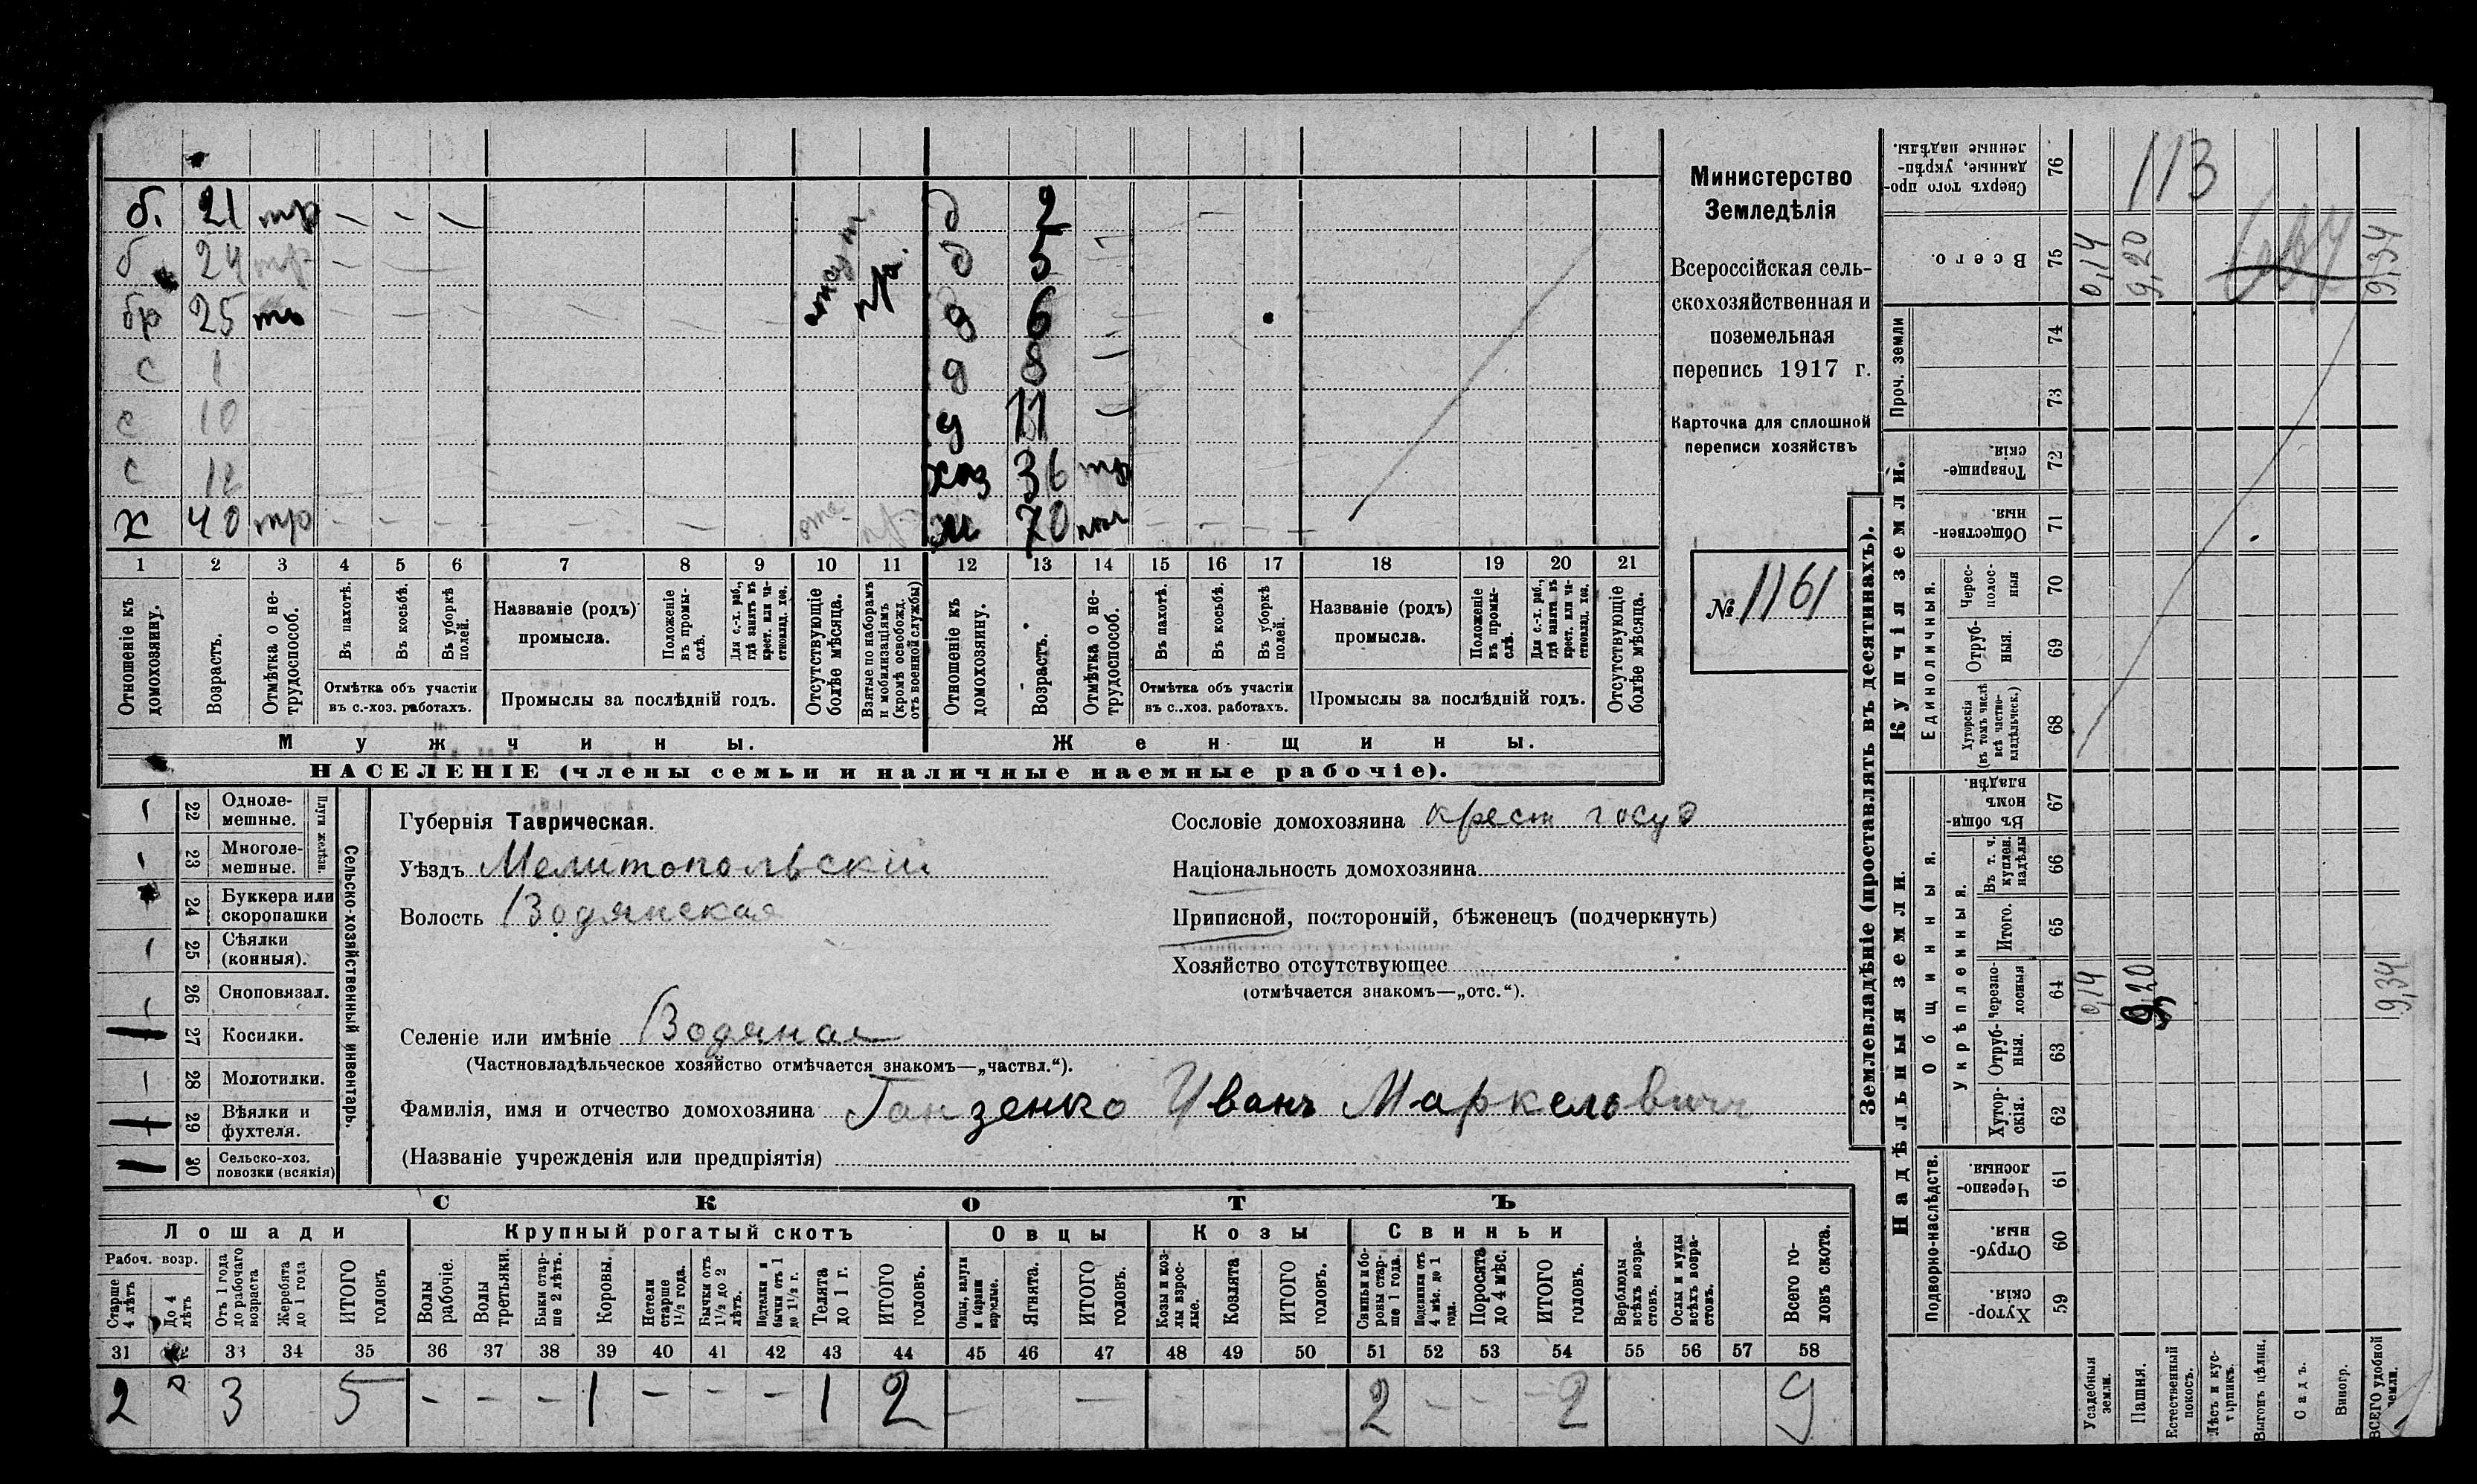 б. 21 тр – – – д 2
б. 24 тр – д 5
бр 25 тр отсут. пр. д 6
с 1 д 8
с 10 д 11
с 12 хоз 36 тр
х 40 тр – – – отс. пр. м 70
1 2 3 4 5 6 7 8 9 10 11 12 13 14 15 16 17 18 19 20 21
Отношеніе къ домохозяину.
Возрастъ.
Отмѣтка о не-трудоспособ.
Въ пахотѣ.
Въ косьбѣ.
Въ уборкѣ полей.
Отмѣтка объ участіи въ с.-хоз. работахъ.
Названіе (родъ) промысла.
Положеніе въ промы-слѣ.
Для с.-х. раб., гдѣ занятъ въ крест. или ча-стновлад. хоз.
Промыслы за послѣдній годъ.
Отсутствующіе болѣе мѣсяца.
Взятые по наборамъ и мобилизаціямъ (кромѣ освобожд. отъ военной службы)
Отношеніе къ домохозяину.
Возрастъ.
Отмѣтка о не-трудоспособ.
Въ пахотѣ.
Въ косьбѣ.
Въ уборкѣ полей.
Отмѣтка объ участіи въ с.-хоз. работахъ.
Названіе (родъ) промысла.
Положеніе въ промы-слѣ.
Для с.-х. раб., гдѣ занята въ крест. или ча-стновлад. хоз.
Промыслы за послѣдній годъ.
Отсутствующіе болѣе мѣсяца.
Мужчины. Женщины.
НАСЕЛЕНІЕ (члены семьи и наличные наемные рабочіе).
Министерство
Земледѣлія
Всероссійская сель-
скохозяйственная и
поземельная
перепись 1917 г.
Карточка для сплошной
переписи хозяйствъ
№ 1161
Сельско-хозяйственный инвентарь.
Плуги желѣзн.
22 Одноле-мешные.
23 Многоле-мешные.
24 Буккера или скоропашки
25 Сѣялки (конныя).
26 Сноповязал.
27 Косилки.
28 Молотилки.
29 Вѣялки и фухтеля.
30 Сельско-хоз. повозки (всякія)
Губернія Таврическая.
Уѣздъ Мелитопольскій
Волость Водянская
Селеніе или имѣніе Водяная
(Частновладѣльческое хозяйство отмѣчается знакомъ—„частвл.“).
Фамилія, имя и отчество домохозяина Ганзенко Иванъ Маркелович
(Названіе учрежденія или предпріятія)
Сословіе домохозяина крест госуд
Національность домохозяина
Приписной, посторонній, бѣженецъ (подчеркнуть)
Хозяйство отсутствующее
(отмѣчается знакомъ—„отс.“).
СКОТЪ
Лошади Крупный рогатый скотъ Овцы Козы Свиньи
Рабоч. возр.
Старше 4 лѣтъ
До 4 лѣтъ
Отъ 1 года до рабочаго возраста
Жеребята до 1 года
ИТОГО головъ
Волы рабочіе.
Волы третьяки.
Быки стар-ше 2 лѣтъ.
Коровы.
Нетели старше 1½ года.
Бычки отъ 1½ до 2 лѣтъ.
Подтелки и бычки отъ 1 до 1½ г.
Телята до 1 г.
ИТОГО головъ.
Овцы, валухи и бараны взрослые.
Ягнята.
ИТОГО головъ.
Козы и коз-лы взрос-лые.
Козлята
ИТОГО головъ.
Свиньи и бо-ровы стар-ше 1 года.
Подсвинки отъ 4 мѣс. до 1 года.
Поросята до 4 мѣс.
ИТОГО головъ.
Верблюды всѣхъ возра-стовъ.
Ослы и мулы всѣхъ возра-стовъ.
Всего го-ловъ скота.
31 33 34 35 36 37 38 39 40 41 42 43 44 45 46 47 48 49 50 51 52 53 54 55 56 57 58
2 3 5 – – – 1 – – – 1 2 – – 2 – – 2 9
Землевладѣніе (проставлять въ десятинахъ).
Надѣльныя земли. Купчія земли.
Подворно-наслѣдств.
Общинныя.
Укрѣпленныя.
Единоличныя.
Проч. земли
Сверхъ того про-данные, укрѣп-ленные надѣлы. 76 113
Всего. 75 0,14 9,20 9,34
74
73
Товарище-скія 72
Обществен-ныя. 71
Черес-полос-ныя 70
Отруб-ныя. 69
Хуторскія (въ томъ числѣ всѣ частно-владѣльческ.) 68
Въ общин-номъ владѣн. 67
Въ т. ч. куплен. надѣлы 66
Итого. 65
Черезпо-лосныя 64 0,14 9,20 9,34
Отруб-ныя. 63
Хутор-скія. 62
Черезпо-лосныя. 61
Отруб-ныя. 60
Хутор-скія. 59
Усадебныя земли.
Пашня.
Естественный покосъ.
Лѣсъ и кус-тарникъ.
Выгонъ цѣлин.
Садъ.
Виногр.
ВСЕГО удобной земли.